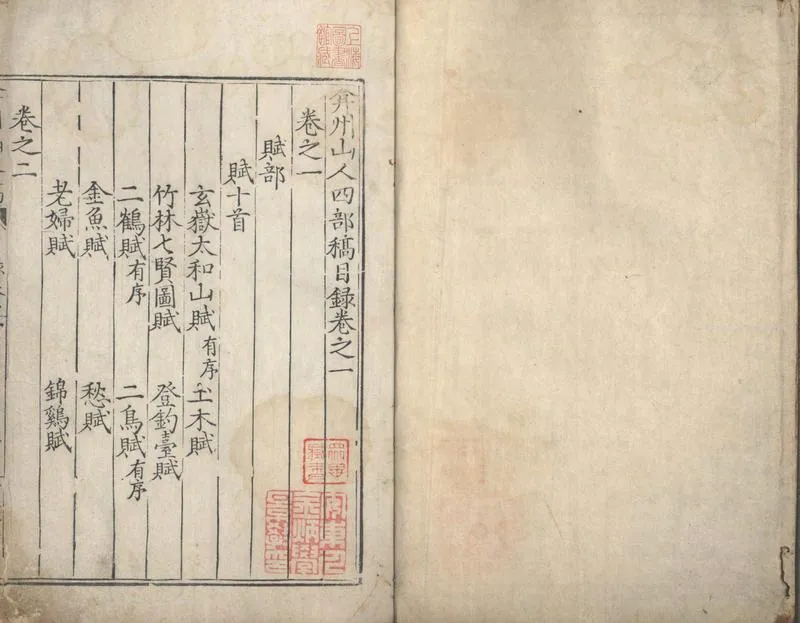 弇州山人四部稿目録卷之一
卷之一
賦部
賦十首
玄嶽太和山賦有序 土木賦
竹林七賢圖賦 登釣臺賦
二鶴賦有序 二鳥賦有序
金魚賦 愁賦
老婦賦 錦鷄賦
卷之二